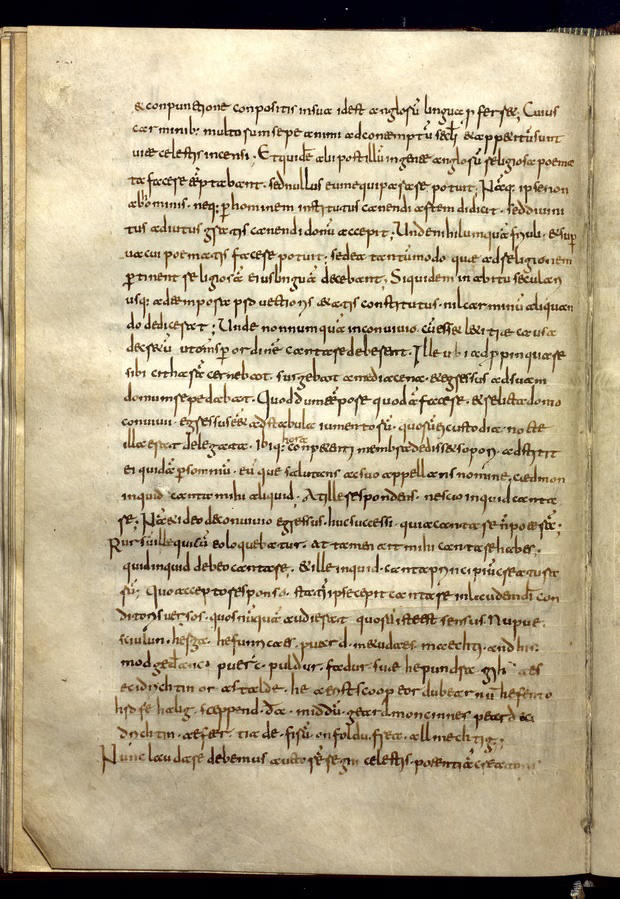 & conpunctione conpositis in sua id est anglorū lingua p fer ret; Cuius
carminib: multorum sepe animi ad contemptū secłi & appetitū sunt
uite celestis incensi; Et quidē alii post illū in gente anglorū religiosa poema
ta facere tēptabant. sed nullus eum equiparare potuit; Nāq: ipse non
ab hominib; neq: p hominem institutus canendi artem didicit. sed diuini
tus adiutus gratis canendi donū accepit; Unde nihil umquā friuoli. & sup
uacui poematis facere potuit; sed ea tantummodo que ad religionem
pertinent religiosā eius linguā decebant; Siquidem in abitu seculari
usq: ad tempora prouectioris aetatis constitutus. nil carminū aliquan
do dedicerat; Unde nonnumquā in conuiuio. cū esset letitiae causa
decretū ut oms p ordinē cantare deberent. Ille ubi adppinquare
sibi citharā cernebat. surgebat a media cena. & egressus ad suam
domum repedabat. Quod dum tēpore quodā faceret. & relicta domo
conuiui egressus eēt ad stabula iumentorū. quorū ei custodia nocte
illa erat delegata. ibiq: hora conpetenti membra dedisset sopori. adstitit
ei quidā p somniū. eū que salutans ac suo appellans nomine; cedmon
inquid canta mihi aliquid. At ille respondens. nescio inquid canta
re; Nā et ideo de conuiuio egressus. huc successi. quia cantare ñ poterā;
Rursū ille qui cū eo loquebatur. at tamen ait mihi cantare habes.
quid inquid debeo cantare. & ille inquid. canta principiū creatura
rū; Quo accepto responso. statī ipse cepit cantare in laudem dī con
ditoris uersos. quos nūquā audierat quorū iste est sensus. Nu pue.
sciulun. herga. hefunricaes. puard. metudaes. maechti. and his.
modgedanc. puerc. puldur. fadur. sue he pundra gihuaes
eci drichtin or astalde. he aerist scoop eordu bearnū hefen to
hrofe halig. sceppend. da middū. geard. moncinnes peard eci
drichtin. aefter. tia de. firū. on foldu. frea. allmechtig;
Nunc laudare debemus auctorē regni celestis. potentiā creatoris